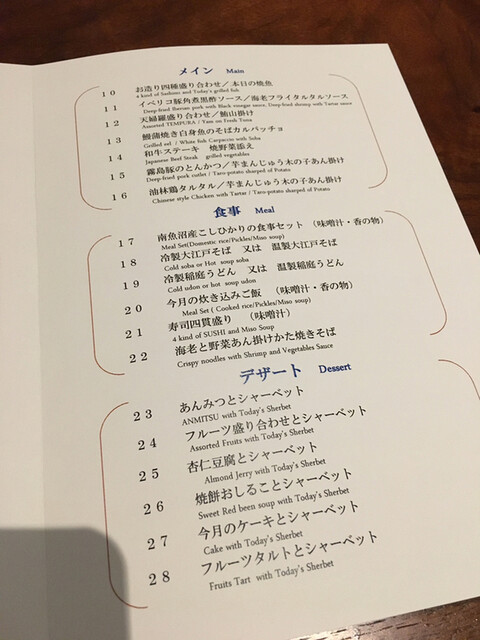 メイン Main
10 お造り四種盛り合わせ／本日の焼魚
4 kind of Sashimi and Today's grilled fish
11 イベリコ豚角煮黒酢ソース／海老フライタルタルソース
Deep-fried Iberian pork with Black vinegar sauce, Deep-fried shrimp with Tartar sauce
12 天婦羅盛り合わせ／鮪山掛け
Assorted TEMPURA / Yam on Fresh Tuna
13 鰻蒲焼き白身魚のそばカルパッチョ
Grilled eel / White fish Carpaccio with Soba
14 和牛ステーキ 焼野菜添え
Japanese Beef Steak grilled vegetables
15 霧島豚のとんかつ／芋まんじゅう木の子あん掛け
Deep-fried pork cutlet / Taco-potato sharped of Potato
16 油林鶏タルタル／芋まんじゅう木の子あん掛け
Chinese style Chicken with Tartar / Taco-potato sharped of Potato
食事 Meal
17 南魚沼産こしひかりの食事セット （味噌汁・香の物）
Meal Set(Domestic rice/Pickles/Miso soup)
18 冷製大江戸そば 又は 温製大江戸そば
Cold soba or Hot soup soba
19 冷製稲庭うどん 又は 温製稲庭うどん
Cold udon or hot soup udon
20 今月の炊き込みご飯 （味噌汁・香の物）
Meal Set ( Cooked rice/Pickles/Miso soup)
21 寿司四貫盛り （味噌汁）
4 kind of SUSHI and Miso Soup
22 海老と野菜あん掛けかた焼きそば
Crispy noodles with Shrimp and Vegetables Sauce
デザート Dessert
23 あんみつとシャーベット
ANMITSU with Today's Sherbet
24 フルーツ盛り合わせとシャーベット
Assorted Fruits with Today's Sherbet
25 杏仁豆腐とシャーベット
Almond Jerry with Today's Sherbet
26 焼餅おしることシャーベット
Sweet Red been soup with Today's Sherbet
27 今月のケーキとシャーベット
Cake with Today's Sherbet
28 フルーツタルトとシャーベット
Fruits Tart with Today's Sherbet